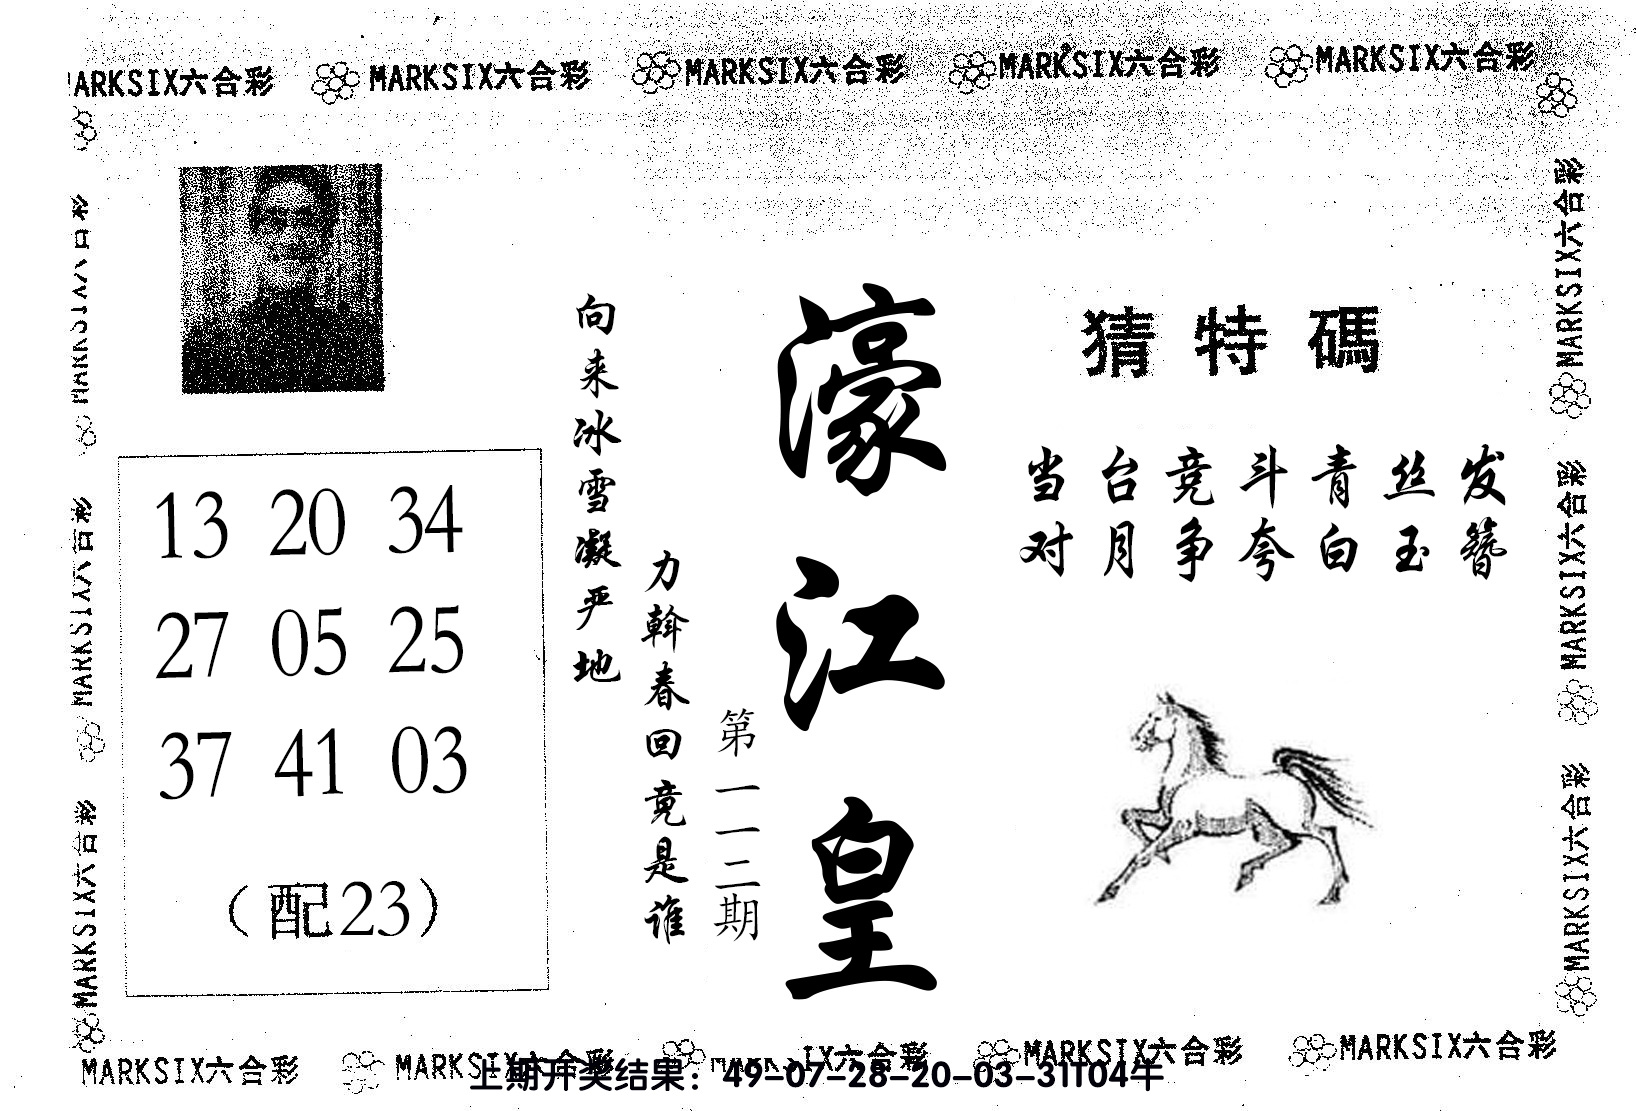 MARKSIX六合彩 MARKSIX六合彩 MARKSIX六合彩 MARKSIX六合彩 MARKSIX六合彩
濠江皇
第一一二期
向来冰雪凝严地
力斡春回竟是谁
13 20 34
27 05 25
37 41 03
（配23）
猜特碼
当台竞斗青丝发
对月争夸白玉簪
MARKSIX六合彩
MARKSIX六合彩
MARKSIX六合彩
MARKSIX六合彩
MARKSIX六合彩
MARKSIX六合彩
MARKSIX六合彩 MARKSIX六合彩 MARKSIX六合彩 MARKSIX六合彩 MARKSIX六合彩
上期开奖结果：49-07-28-20-03-31T04牛